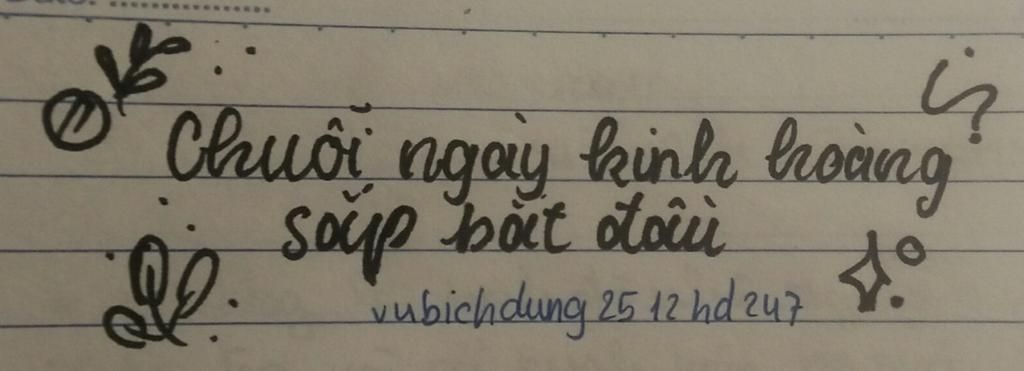 Chuỗi ngày kinh hoàng
sắp bắt đầu
vubichdung 25 12 hd 247